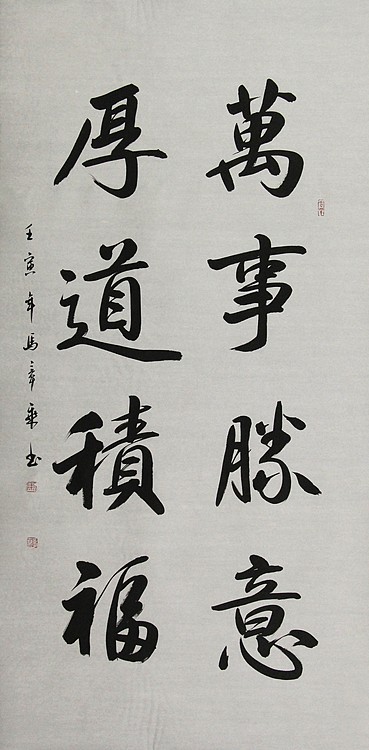 萬事勝意
厚道積福
壬寅年馬章乘书